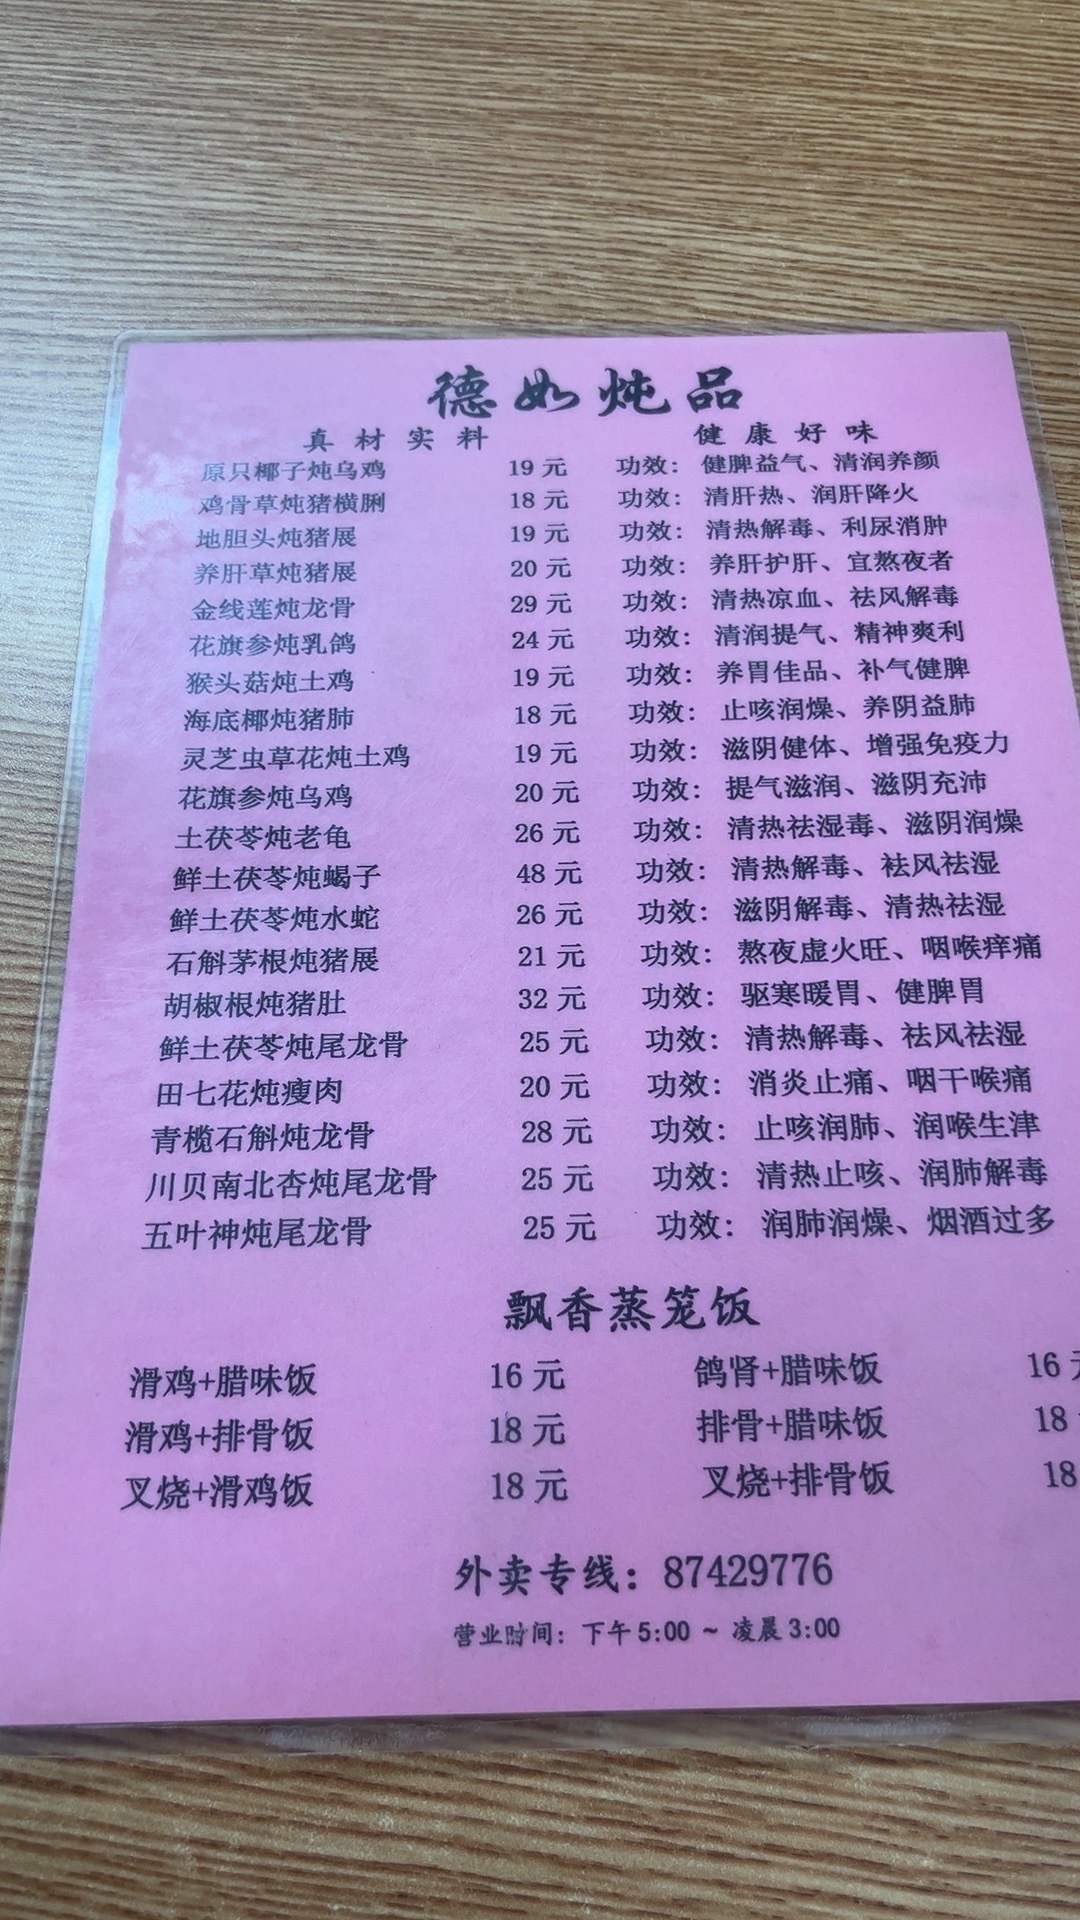 德如炖品
真材实料 健康好味
原只椰子炖乌鸡 19元 功效：健脾益气、清润养颜
鸡骨草炖猪横脷 18元 功效：清肝热、润肝降火
地胆头炖猪展 19元 功效：清热解毒、利尿消肿
养肝草炖猪展 20元 功效：养肝护肝、宜熬夜者
金线莲炖龙骨 29元 功效：清热凉血、祛风解毒
花旗参炖乳鸽 24元 功效：清润提气、精神爽利
猴头菇炖土鸡 19元 功效：养胃佳品、补气健脾
海底椰炖猪肺 18元 功效：止咳润燥、养阴益肺
灵芝虫草花炖土鸡 19元 功效：滋阴健体、增强免疫力
花旗参炖乌鸡 20元 功效：提气滋润、滋阴充沛
土茯苓炖老龟 26元 功效：清热祛湿毒、滋阴润燥
鲜土茯苓炖蝎子 48元 功效：清热解毒、祛风祛湿
鲜土茯苓炖水蛇 26元 功效：滋阴解毒、清热祛湿
石斛茅根炖猪展 21元 功效：熬夜虚火旺、咽喉痒痛
胡椒根炖猪肚 32元 功效：驱寒暖胃、健脾胃
鲜土茯苓炖尾龙骨 25元 功效：清热解毒、祛风祛湿
田七花炖瘦肉 20元 功效：消炎止痛、咽干喉痛
青榄石斛炖龙骨 28元 功效：止咳润肺、润喉生津
川贝南北杏炖尾龙骨 25元 功效：清热止咳、润肺解毒
五叶神炖尾龙骨 25元 功效：润肺润燥、烟酒过多
飘香蒸笼饭
滑鸡+腊味饭 16元 鸽肾+腊味饭 16元
滑鸡+排骨饭 18元 排骨+腊味饭 18
叉烧+滑鸡饭 18元 叉烧+排骨饭 18
外卖专线：87429776
营业时间：下午5:00 ~ 凌晨3:00